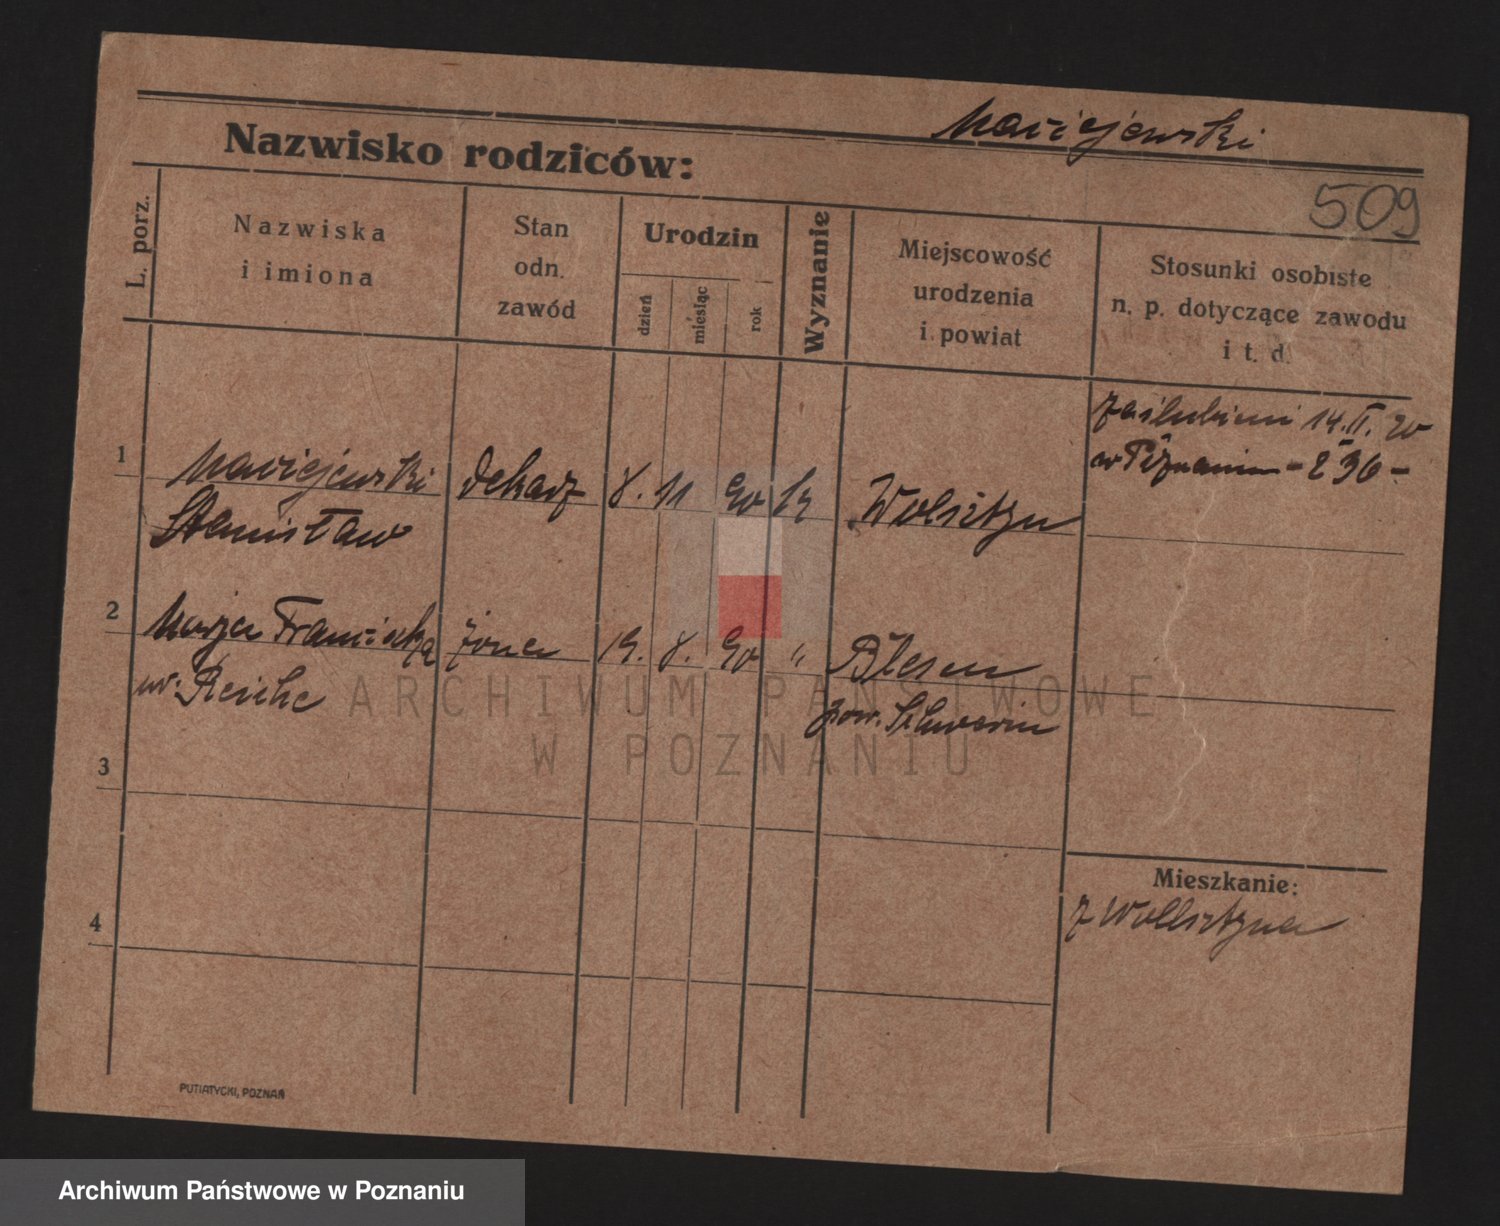 Maciejewski
Nazwisko rodziców:
509
L. porz.
Nazwiska
i imiona
Stan
odn.
zawód
Urodzin
dzień
miesiąc
rok
Wyznanie
Miejscowość
urodzenia
i powiat
Stosunki osobiste
n. p. dotyczące zawodu
i t. d.
zaślubieni 14.II.20
w Poznaniu - 236 -
1
Maciejewski
Stanisław
dekarz
8. 11 90
Wolsztyn
2
Marja Franciszka
ur. Reiche
żona
19. 8. 90 "
Blesen
pow. Schwerin
3
4
Mieszkanie:
z Wollsztyna
PUTIATYCKI, POZNAŃ
ARCHIWUM PAŃSTWOWE
W POZNANIU
Archiwum Państwowe w Poznaniu